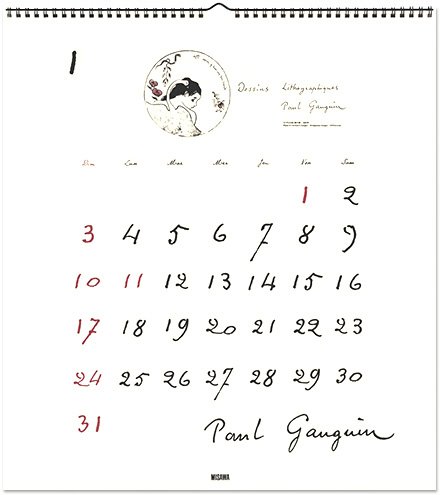 1
Dessins Lithographiques
Paul Gauguin
Dim Lun Mar Mer Jeu Ven Sam
1 2
3 4 5 6 7 8 9
10 11 12 13 14 15 16
17 18 19 20 21 22 23
24 25 26 27 28 29 30
31
Paul Gauguin
MISAWA